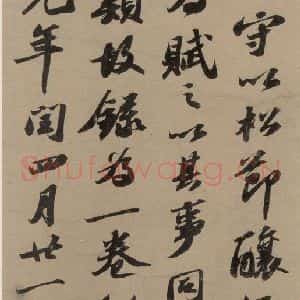 守以松節釀
為賦之以其事同
類故錄為一卷
元年閏四月廿一